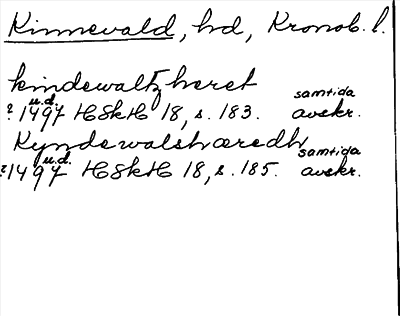 Kinnevald, hd, Kronob. l.
kindewaltz heret
u.d. samtida
? 1497 HSkH 18, s. 183. avskr.
Kyndewalshæredh
u.d. samtida
?1497 HSkH 18, s. 185. avskr.